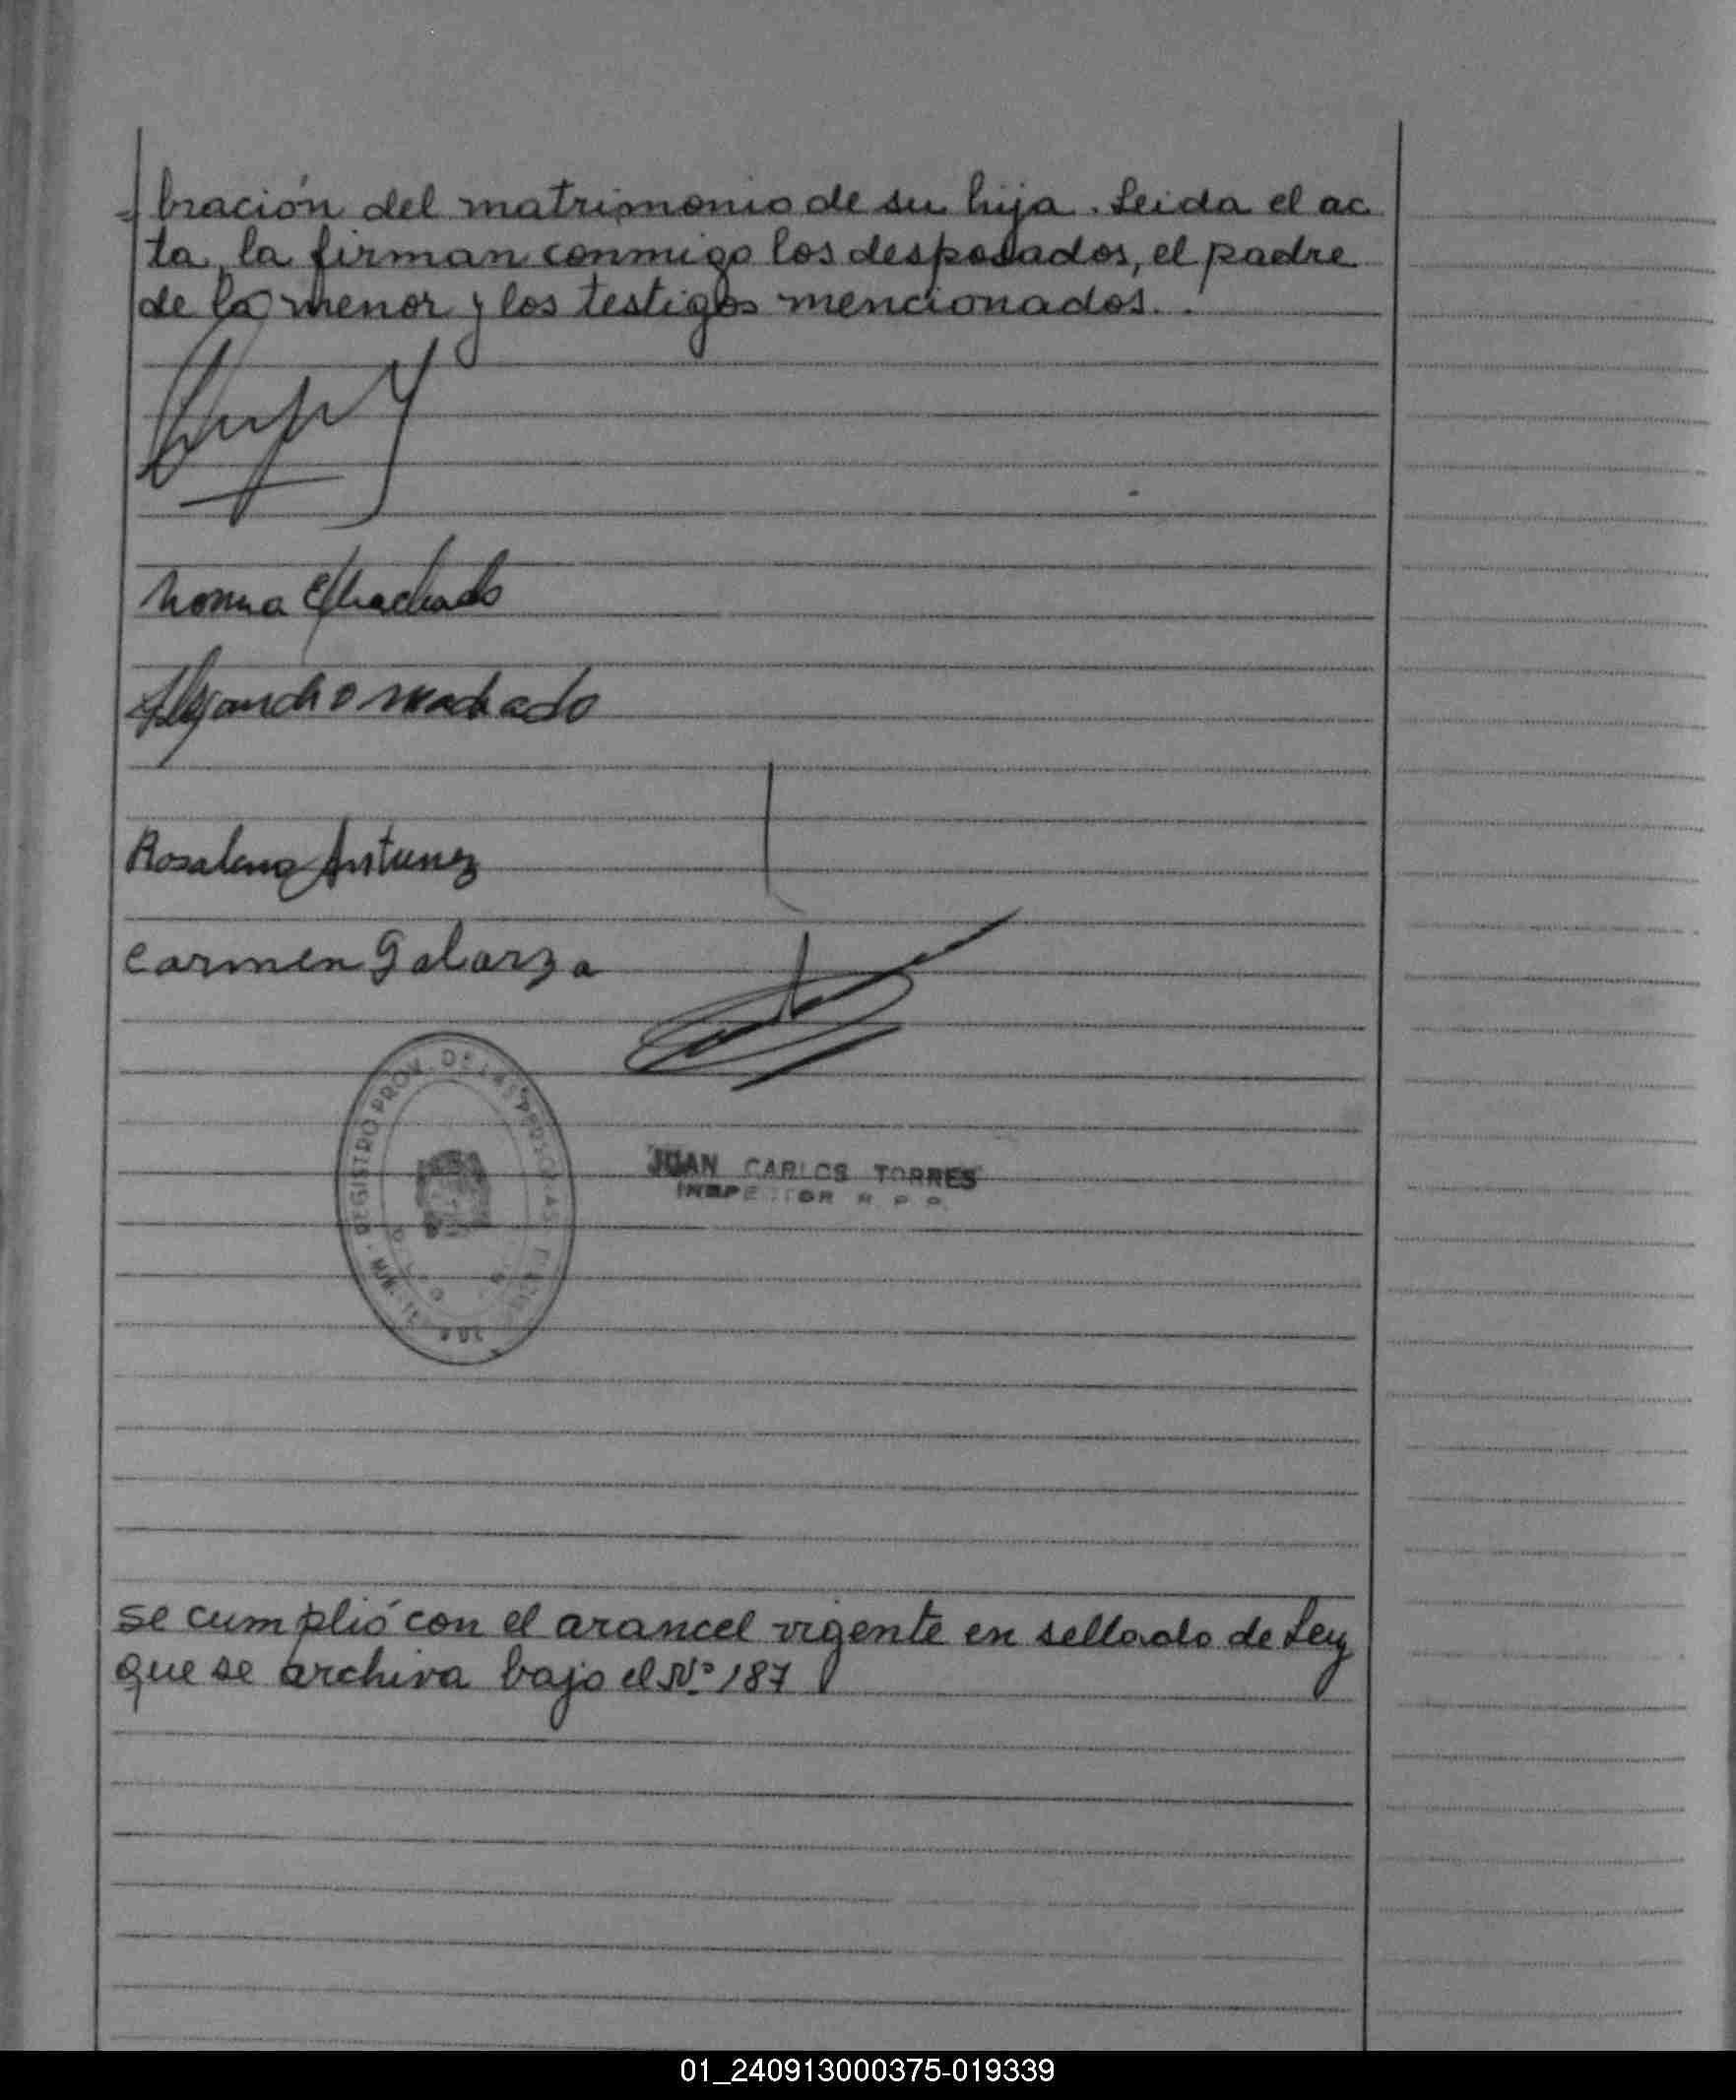 =bración del matrimonio de su hija. Leida el ac
ta, la firman conmigo los desposados, el padre
de la menor y los testigos mencionados..
Norma E Machado
Alejandro Machado
Antunez
Carmen Galarza
REGISTRO PROV. DE LAS PERSONAS
JUAN CARLOS TORRES
INSPECTOR R. P. P.
se cumplió con el arancel vigente en sellado de Ley
que se archiva bajo el Nº 187
01_240913000375-019339